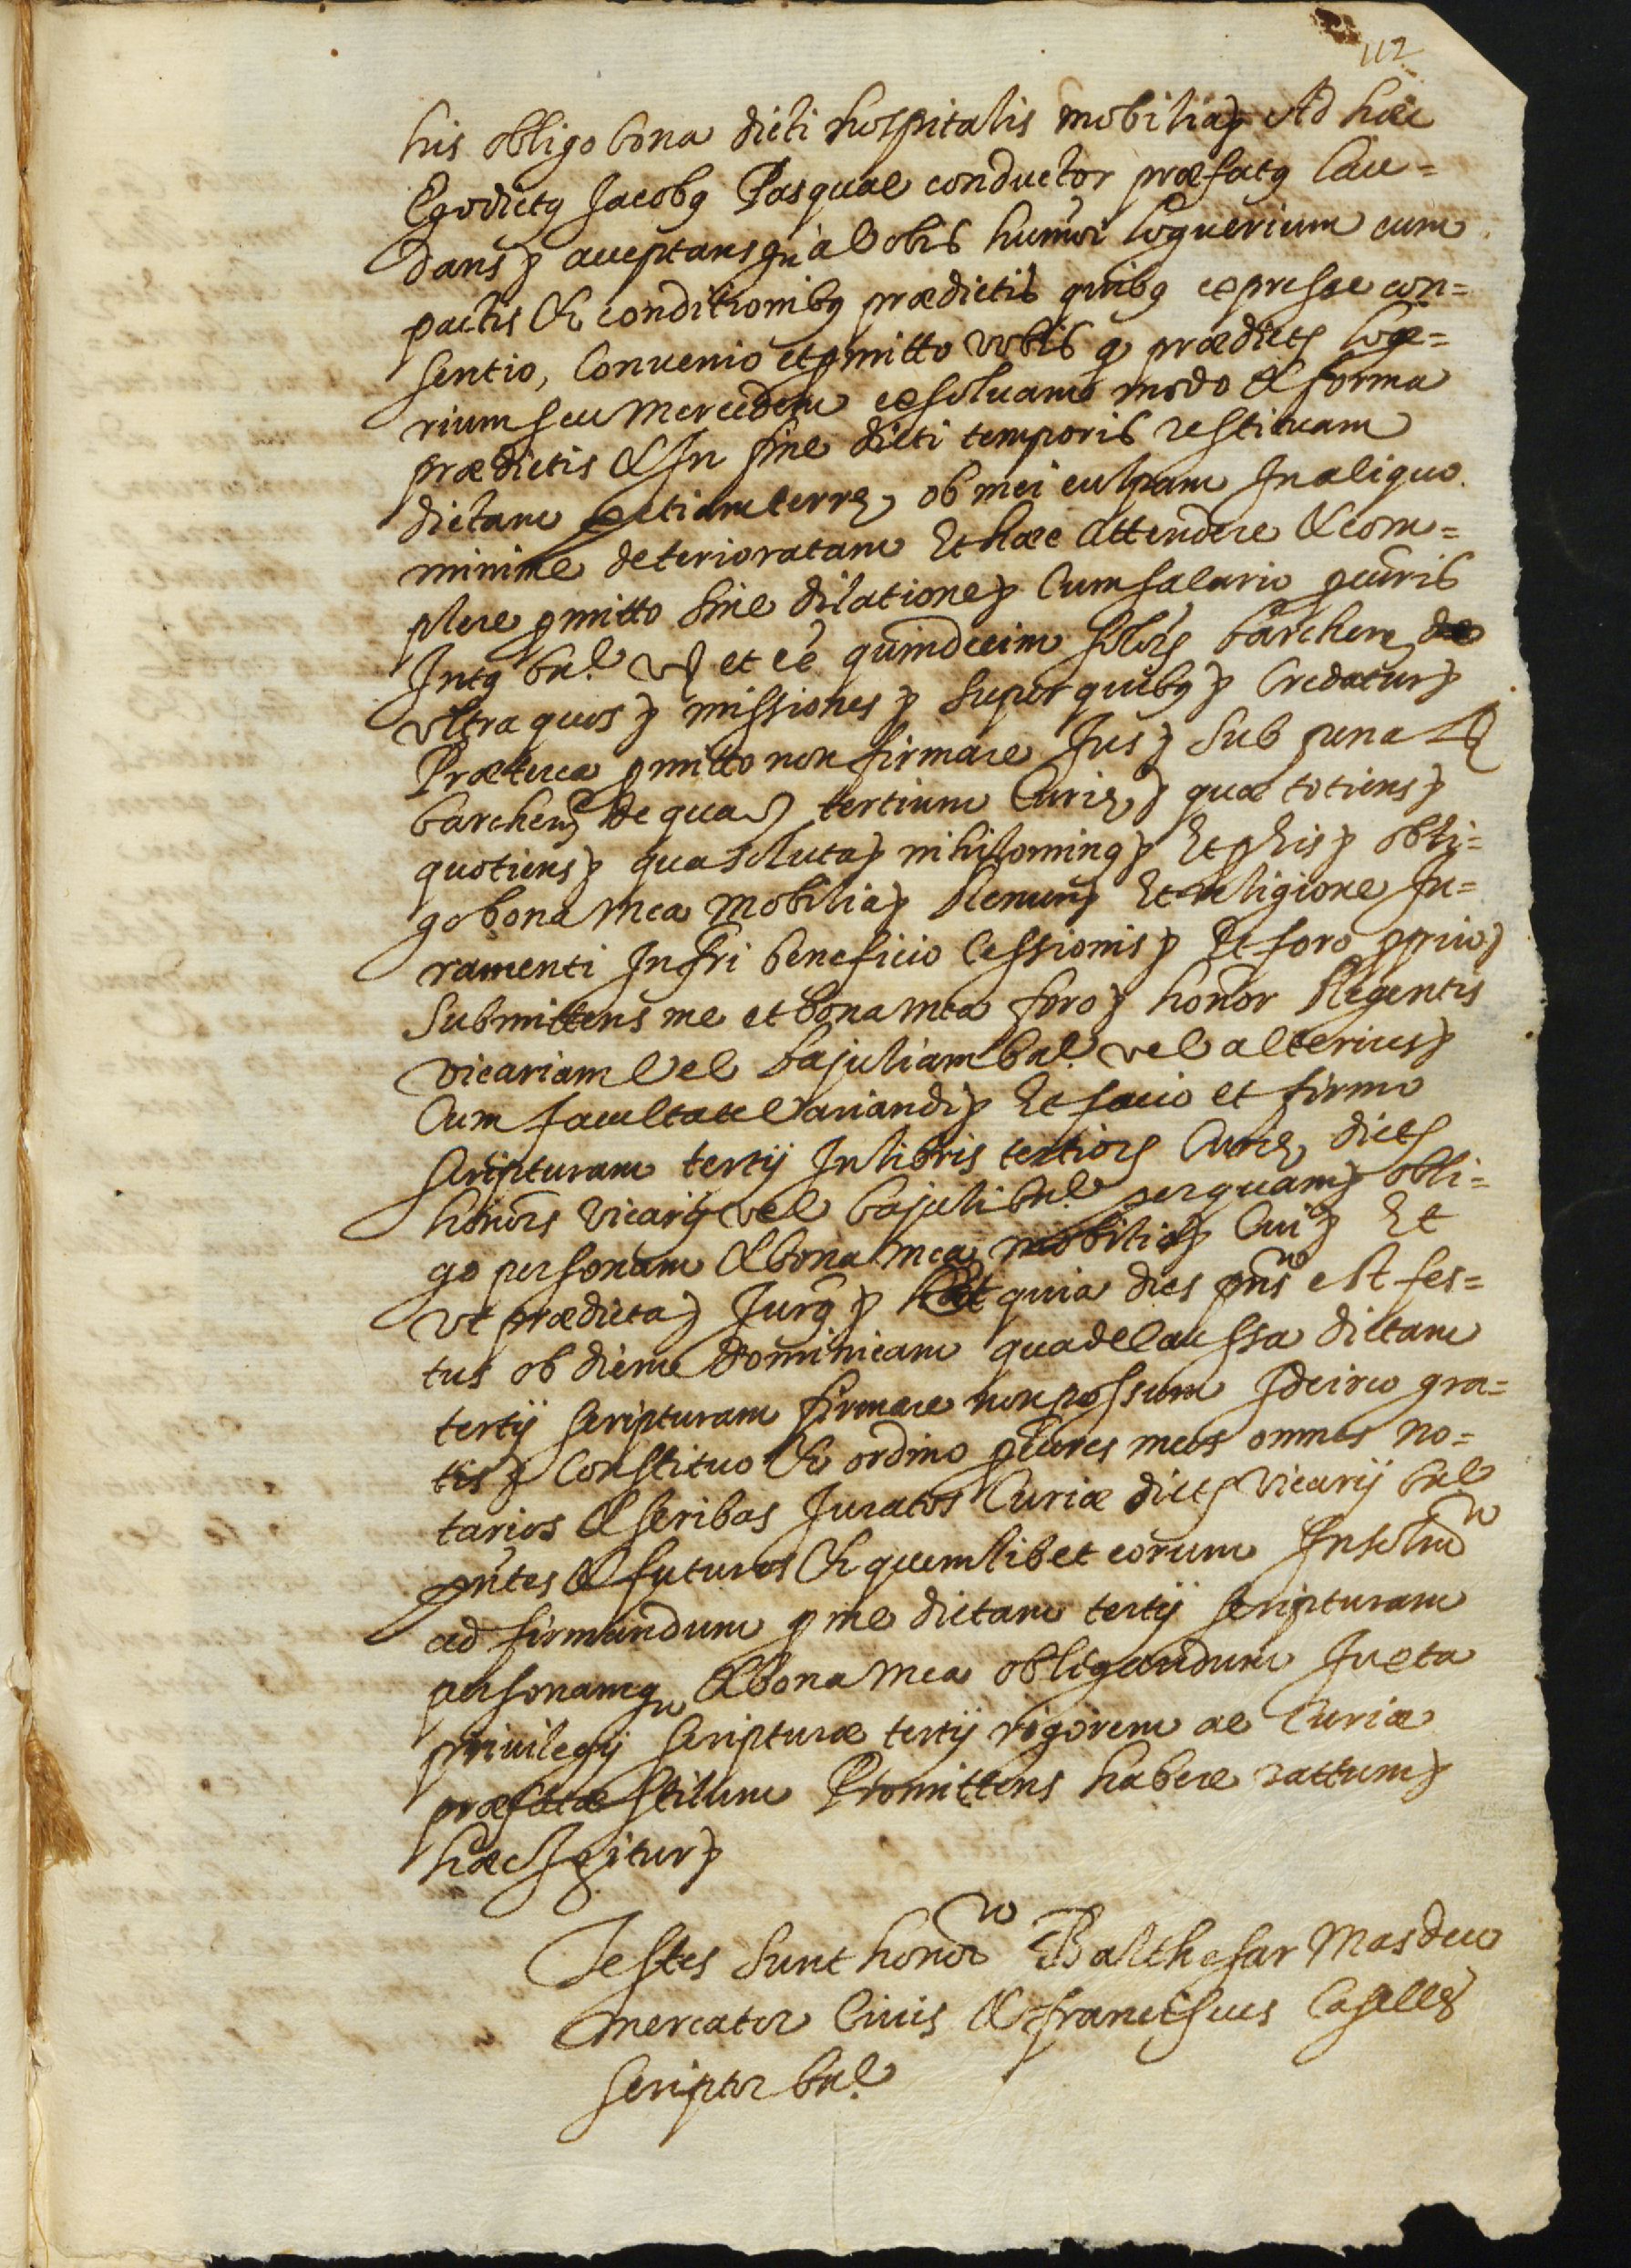 112
his obligo bona dicti hospitalis mobilia ꝫ Ad hæc
Ego dictꝰ Jacobꝰ Pasqual conductor præfatꝰ lau=
dans ꝫ acceptansqꝫ a vobis humōi loguerium cum
pactis & conditionibꝰ prædictis quibꝰ expresse con=
sentio, Convenio et ꝓmitto vobis ꝙ prædictū loge=
rium seu mercedem exsolvam modo & forma
prædictis & In fine dicti temporis restituam
dictam petiam terrę, ob mei culpam In aliquo
minime deterioratam Et hæc attendere & com=
plere ꝓmitto sine dilatione ꝫ Cum salario ꝓcūris
Intꝰ bnᵉ. vꝫ et ex̄ quindecim solidꝝ barchenꝫ
ultra quos ꝫ missiones ꝫ super quibꝰ ꝫ Credatur ꝫ
Præterea ꝓmitto non firmare Jus ꝫ sub pena
barchenꝫ de qua ꝫ tertium Curię ꝫ quæ totiens ꝫ
quotiens ꝫ qua soluta ꝫ nihilominꝰ ꝫ Et ꝓ his ꝫ obli=
go bona mea mobilia ꝫ Renunꝫ Et religione Ju=
ramenti Infrī beneficio Cessionis ꝫ Et foro ꝓprio ꝫ
Submittens me et bona mea foro ꝫ honor Regentis
vicariam vel bajuliam bnᵉ. vel alterius ꝫ
Cum facultate variandi ꝫ Et facio et firmo
scripturam tertij In libris tertiorꝫ Curię, dictꝫ
honors vicarij vel bajuli bnᵉ. per quam ꝫ obli=
go personam & bona mea mobilia ꝫ Cui ꝫ Et
ut prædicta ꝫ Juro ꝫ Et quia dies pn̄s est fes=
tus ob diem dominicam qua de caussa dictam
tertij scripturam firmare non possum Idcirco gra=
tis ꝫ Constituo & ordino ꝓcūres meos omnes no=
tarios & scribas Juratos Curiæ dictꝫ vicarij bnᵉ
pn̄tes & futuros & quemlibet eorum Insolm̄
ad firmandum ꝓ me dictam tertij scripturam
personamqꝫ & bona mea obligandum Juxta
privilegij scripturæ tertij rigorem ac Curiæ
præfatæ stilum Promittens habere rattum ꝫ
hæc Igitur ꝫ
Testes sunt honor Balthesar Masdeu
mercator Civis & franciscus Casells
scriptor bnᵉ.